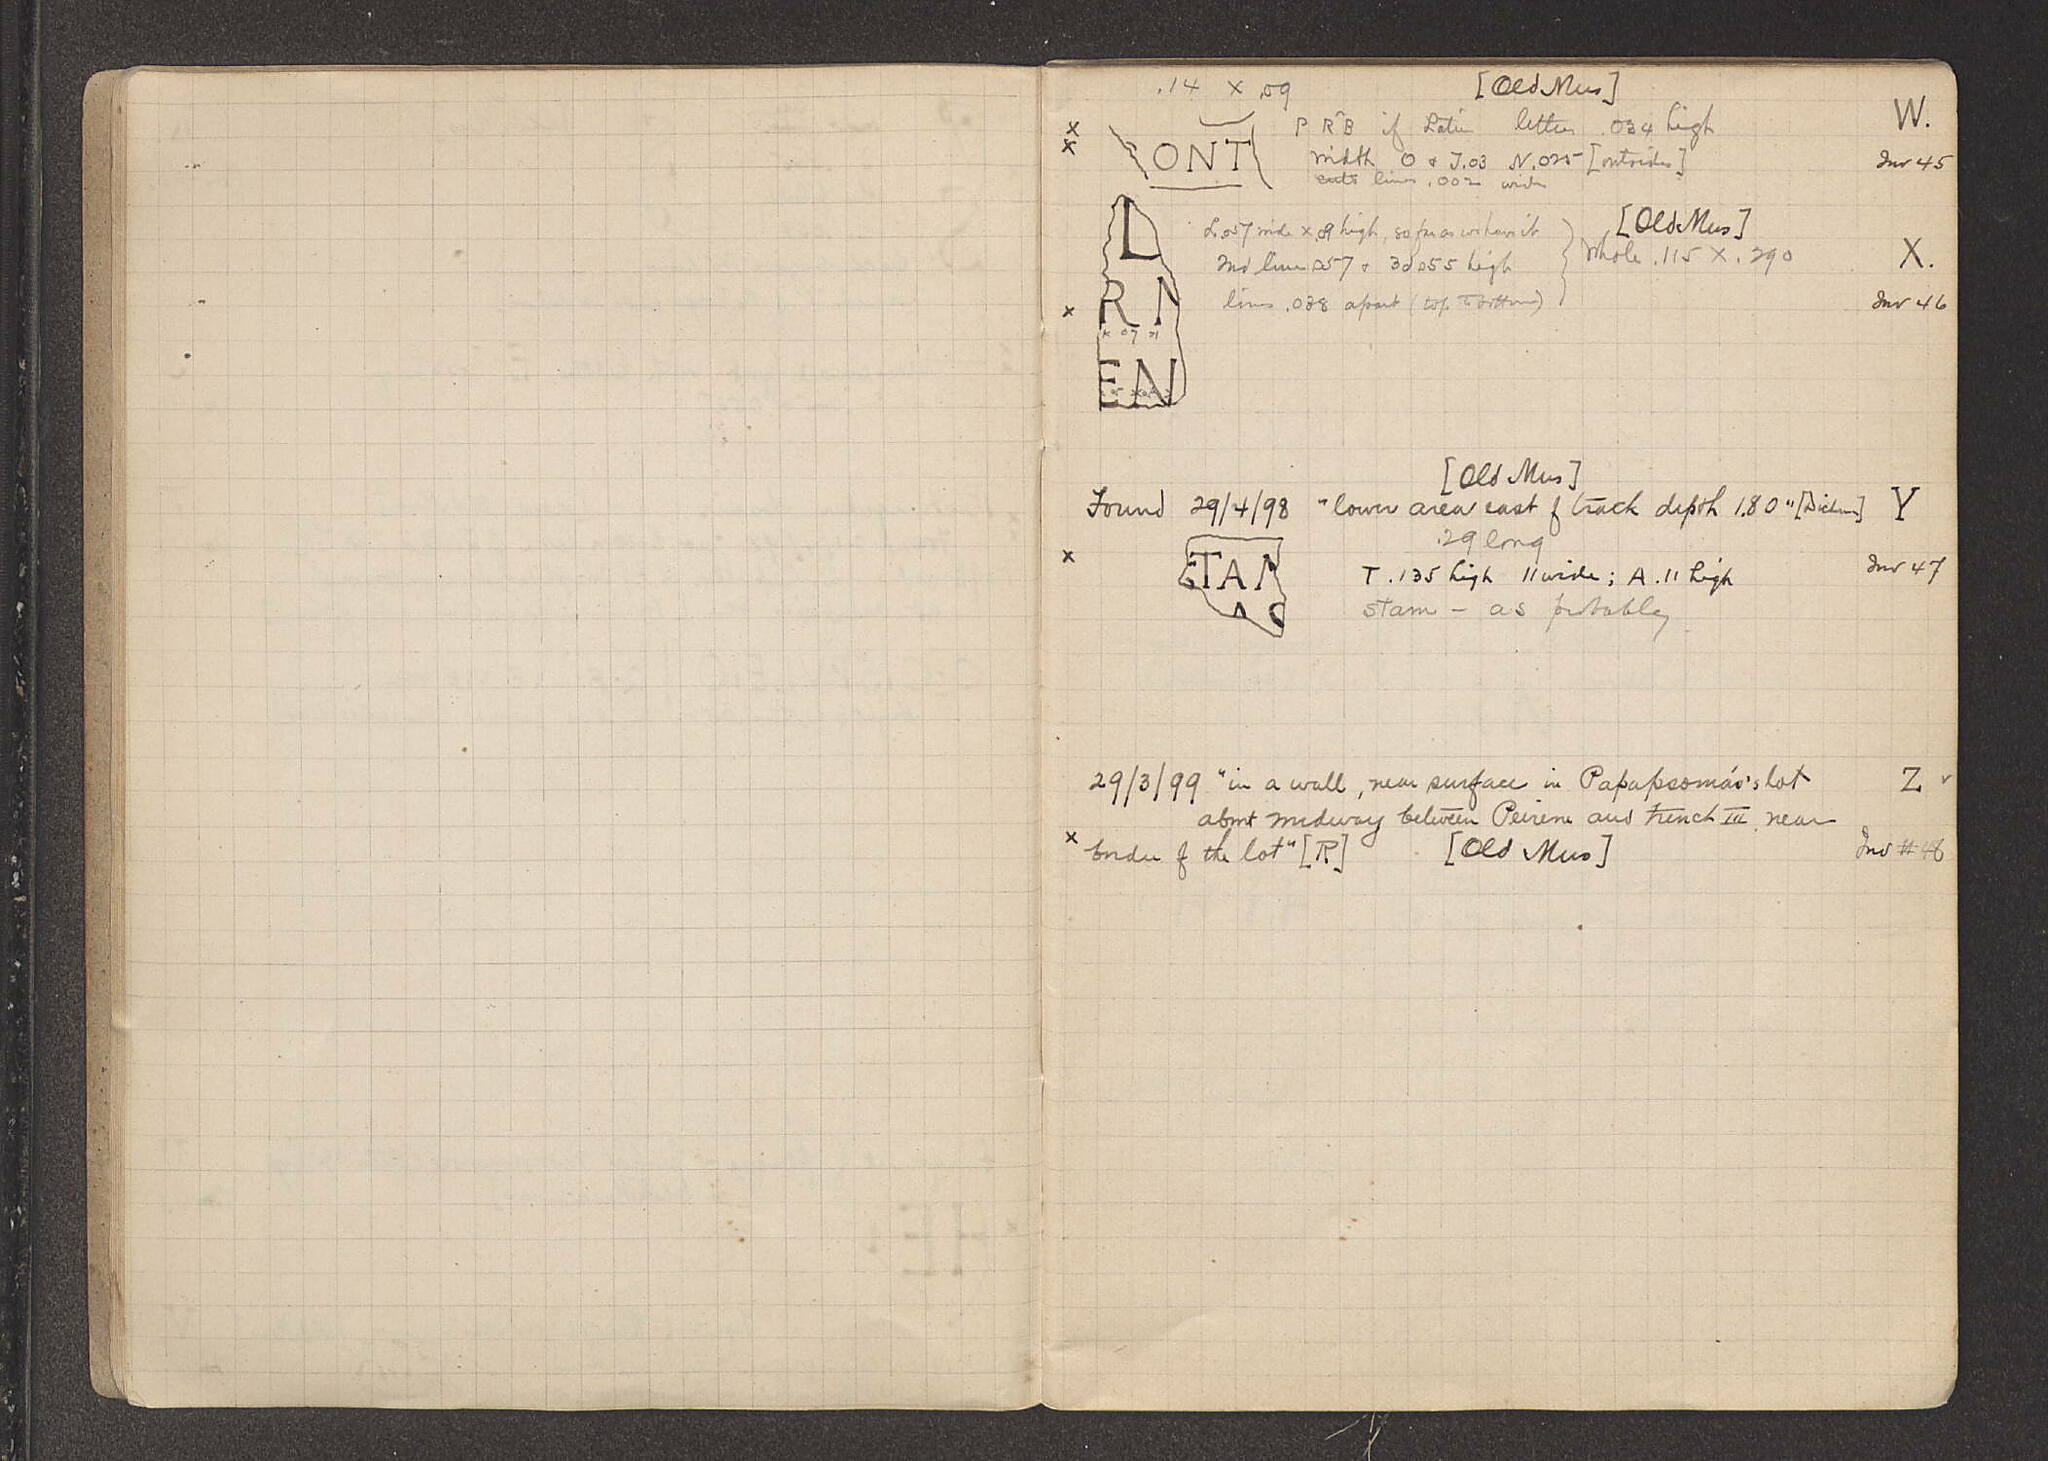 .14 x .09 [Old Mus]
P R B if Latin letters .034 high W.
x
x ONT width O & T .03 N .025 [outsides] Inv 45
lines .002 wide
L L .057 wide x .09 high, so far as we have it [Old Mus]
2nd line .057 & 3d .055 high Whole .115 x .290 X.
x R N lines .038 apart (top to bottom) Inv 46
x 07 x
EN
[Old Mus]
Found 29/4/98 "lower area east of track depth 1.80" [Dickm] Y
.29 long
x ETAN T .135 high 11 wide; A .11 high Inv 47
AS stam - as probably
29/3/99 "in a wall, near surface in Papapsomás's lot Z
about midway between Peirene and trench III near
x border of the lot" [R] [Old Mus] Inv # 48